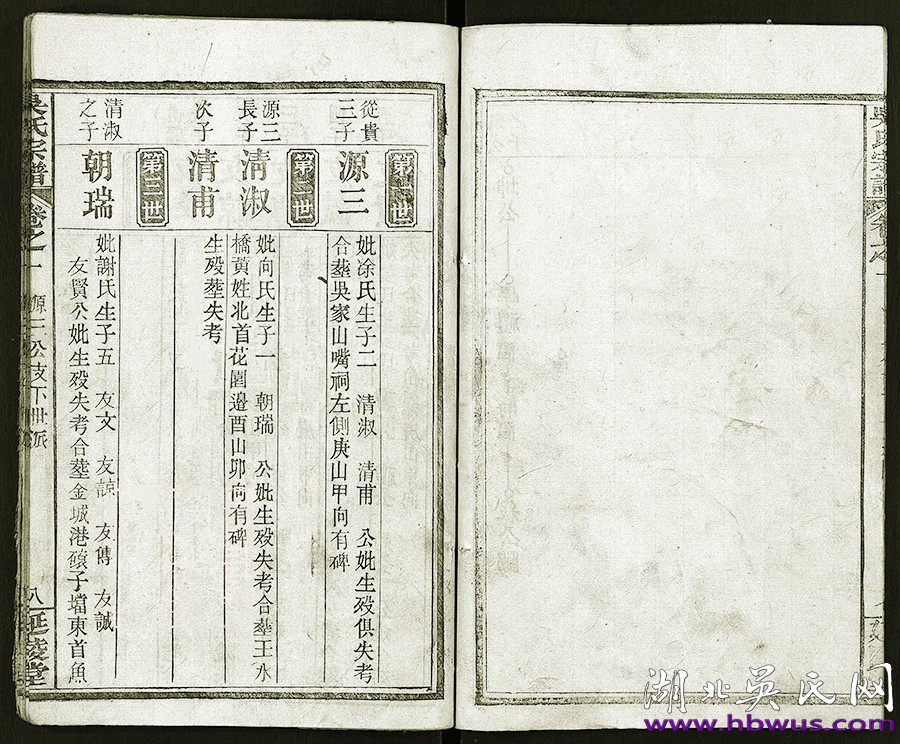 吳氏宗譜
卷之一
第一世
從貴
三子
源三
妣涂氏生子二 清淑 清甫 公妣生殁俱失考
合塟吳家山嘴祠左側庚山甲向有碑
第二世
源三
長子
清淑
妣向氏生子一 朝瑞 公妣生殁失考合塟王水
橋黃姓北首花園邊酉山卯向有碑
次子
清甫
生殁塟失考
第三世
清淑
之子
朝瑞
妣謝氏生子五 友文 友諒 友儁 友誠
友賢公妣生殁失考合塟金城港磧子壋東首魚
吳氏宗譜
卷之一
源三公支下世派
八
延陵堂
湖北吳氏网
www.hbwus.com